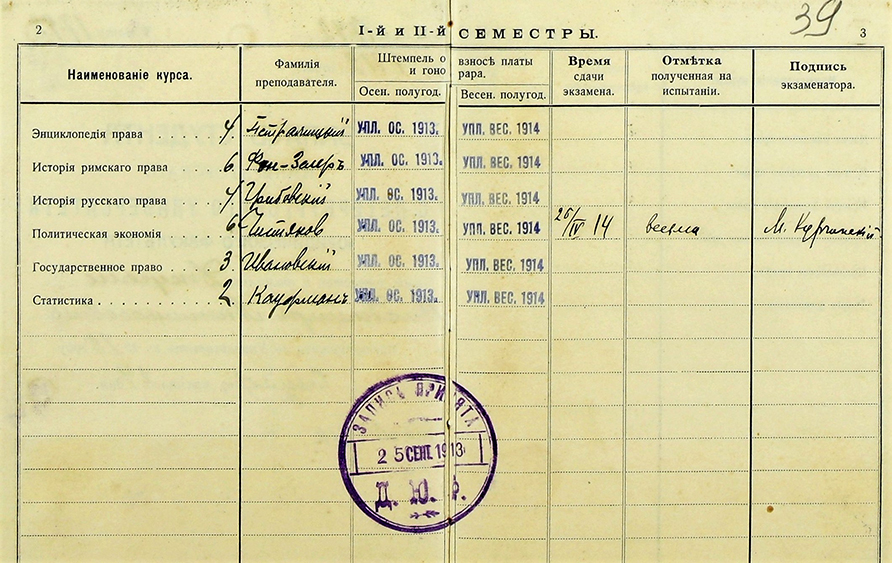 39
2 I-й и II-й СЕМЕСТРЫ. 3
Наименованіе курса. Фамилія преподавателя. Штемпель о взносѣ платы и гонорара. Время сдачи экзамена. Отмѣтка полученная на испытаніи. Подпись экзаменатора.
Осен. полугод. Весен. полугод.
Энциклопедія права 4. Петражицкій УПЛ. ОС. 1913. УПЛ. ВЕС. 1914
Исторія римскаго права 6. Фон-Зелеръ УПЛ. ОС. 1913. УПЛ. ВЕС. 1914
Исторія русскаго права 4. Грибовскій УПЛ. ОС. 1913. УПЛ. ВЕС. 1914
Политическая экономія 6 УПЛ. ОС. 1913. УПЛ. ВЕС. 1914 25/IV 14 весьма М. Курчинскій
Государственное право 3. Ивановскій УПЛ. ОС. 1913. УПЛ. ВЕС. 1914
Статистика 2. Кауфманъ УПЛ. ОС. 1913. УПЛ. ВЕС. 1914
ЗАПИСЬ ПРИНЯТА
25 СЕНТ. 1913
Д. Ю. Ф.